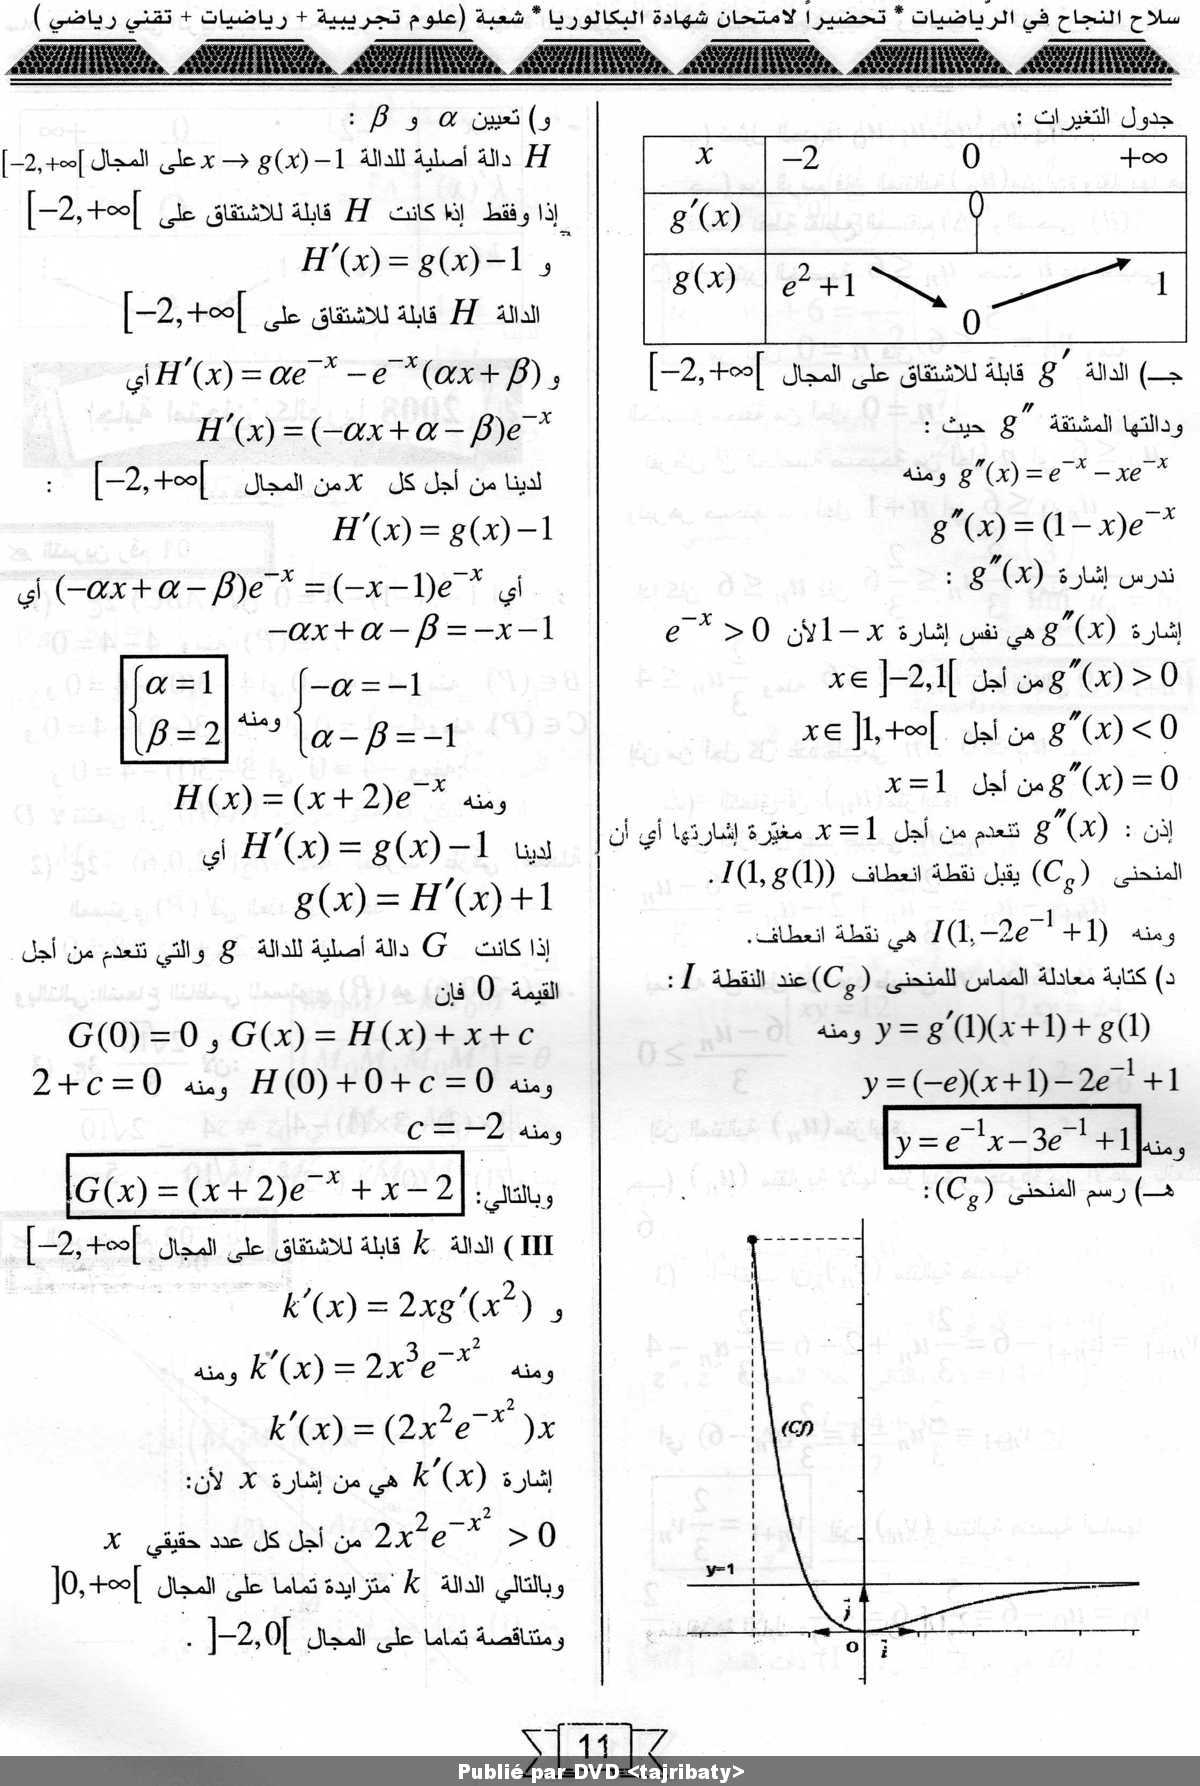 سلاح النجاح في الرياضيات * تحضيراً لامتحان شهادة البكالوريا * شعبة (علوم تجريبية + رياضيات + تقني رياضي )
جدول التغيرات :
x −2 0 +∞
g′(x) 0
g(x) e²+1 0 1
جـ) الدالة g′ قابلة للاشتقاق على المجال [−2,+∞[
ودالتها المشتقة g″ حيث :
g″(x) = e^{−x} − xe^{−x} ومنه
g″(x) = (1−x)e^{−x}
ندرس إشارة g″(x) :
إشارة g″(x) هي نفس إشارة 1−x لأن e^{−x} > 0
g″(x) > 0 من أجل x∈ ]−2,1[
g″(x) < 0 من أجل x∈ ]1,+∞[
g″(x) = 0 من أجل x = 1
إذن : g″(x) تنعدم من أجل x = 1 مغيّرة إشارتها أي أن
المنحنى (C_g) يقبل نقطة انعطاف I(1, g(1)) .
ومنه I(1, −2e^{−1} +1) هي نقطة انعطاف.
د) كتابة معادلة المماس للمنحنى (C_g) عند النقطة I :
y = g′(1)(x+1) + g(1) ومنه
y = (−e)(x+1) − 2e^{−1} +1
ومنه y = e^{−1}x − 3e^{−1} +1
هـ) رسم المنحنى (C_g):
(Cf)
y=1
j
o i
و) تعيين α و β :
H دالة أصلية للدالة x → g(x) −1 على المجال [−2,+∞[
إذا وفقط إذا كانت H قابلة للاشتقاق على [−2,+∞[
و H′(x) = g(x) −1
الدالة H قابلة للاشتقاق على [−2,+∞[
و H′(x) = αe^{−x} − e^{−x}(αx + β) أي
H′(x) = (−αx + α − β)e^{−x}
لدينا من أجل كل x من المجال [−2,+∞[ :
H′(x) = g(x) −1
أي (−αx + α − β)e^{−x} = (−x −1)e^{−x} أي
−αx + α − β = −x −1
{−α = −1
α − β = −1 ومنه {α = 1
β = 2
ومنه H(x) = (x+2)e^{−x}
لدينا H′(x) = g(x) −1 أي
g(x) = H′(x) +1
إذا كانت G دالة أصلية للدالة g والتي تنعدم من أجل
القيمة 0 فإن
G(x) = H(x) + x + c و G(0) = 0
ومنه H(0) + 0 + c = 0 ومنه 2 + c = 0
ومنه c = −2
وبالتالي: G(x) = (x+2)e^{−x} + x − 2
III ) الدالة k قابلة للاشتقاق على المجال [−2,+∞[
و k′(x) = 2xg′(x²)
ومنه k′(x) = 2x³e^{−x²} ومنه
k′(x) = (2x²e^{−x²})x
إشارة k′(x) هي من إشارة x لأن:
2x²e^{−x²} > 0 من أجل كل عدد حقيقي x
وبالتالي الدالة k متزايدة تماما على المجال ]0,+∞[
ومتناقصة تماما على المجال ]−2,0[ .
11
Publié par DVD <tajribaty>